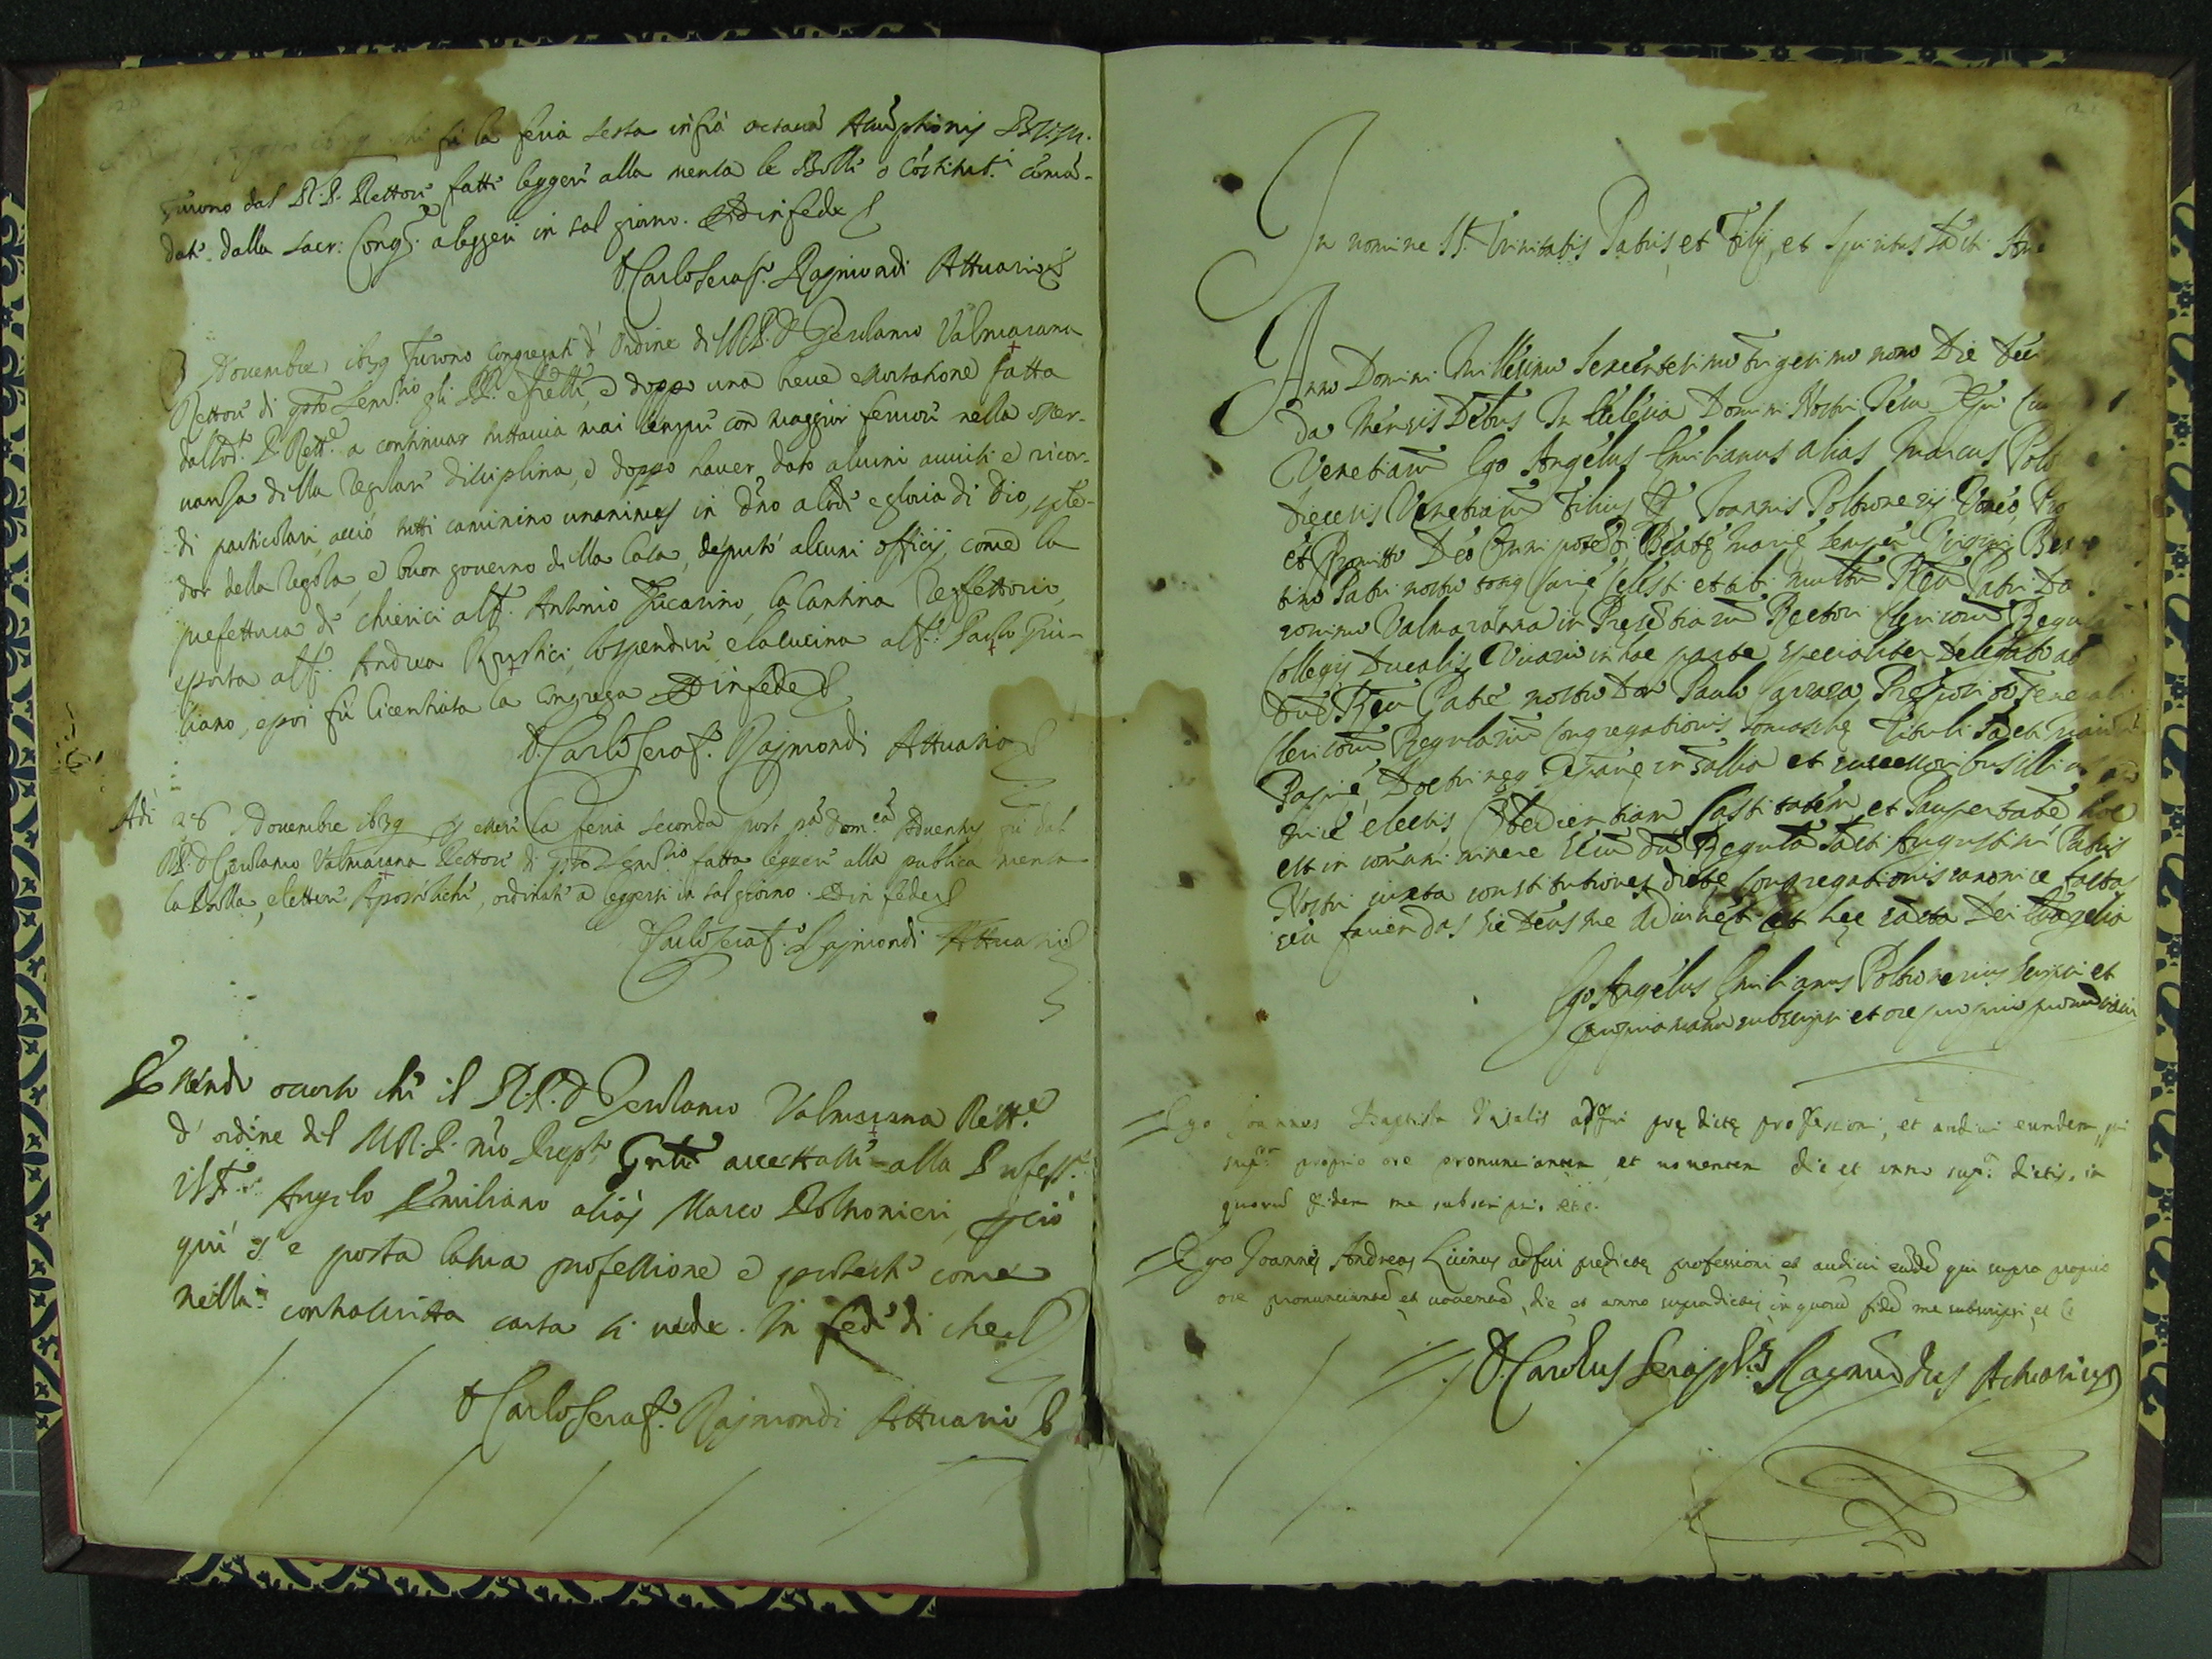 fù la feria sesta infrà octavā Assūptionis B.V.M.
furono dal R.P. Rettore fatte leggere alla mensa le Bolle o Cōstitut.i comā-
date dalla sacr: Cong.e a leggersi in tal giorno. Et in fede
D. Carlo Seraf.o Rajmondi Attuario
Novembre 1639 furono Congregati d'Ordine dil R.P. D. Gerolamo Valmarana
Rettore di q.sto Sem.rio gli PP. e fr̄elli, e doppo una breve essortatione fatta
dal sod.o P. Rett.e a continuar tuttavia mai sēpre con maggior fervore nella osser-
vanza della regolare disciplina, e doppo haver dato alcuni avvisi e ricor-
di particolari, acciò tutti caminino unanimes in d̄no a lode e gloria di Dio, sple-
dor della regola, e buon governo della Casa, deputò alcuni officij, come la
prefettura de chierici al f. Antonio la Cantina Reffettorio,
e porta al f. Andrea Rustici, lo spendere e la cucina al f. Paolo Giu-
liano, e poi fù licentiata la Congrega Et in fede
D. Carlo Seraf.o Rajmondi Attuario
Adi 28 Novembre 1639 p essere la feria seconda post p.ā Dom.cā Adventus fu dal
R.P. D. Gerolamo Valmarana Rettore di q.sto Sem.rio fatta leggere alla publica mensa
la Bolla, e lettere Apostoliche, ordinate a leggersi in tal giorno. Et in fede
D. Carlo Seraf.o Rajmondi Attuario
Essendo occorso che il R.P. D. Gerolamo Valmarana Rett.e
d'ordine del M.R.P. n̄ro Prep.to G̅n̅le accettasse alla Profess.e
il f. Angelo Emiliano aliàs Marco Poltronieri, p ciò
qui s'è posta la sua professione e proteste come
nella contrascritta carta si vede. In fede di che
D. Carlo Seraf.o Rajmondi Attuario
In nomine SS. Trinitatis Patris, et Filij, et Spiritus Sācti Ame
Anno Domini Millesimo Sexcentesimo trigesimo nono Die
da Mensis Debris In Ecclesia Domini Nostri Jesu
Venetiarū Ego Angelus Emilianus alias Marcus Polt
Diecesis Venetiarū Filius Joannis Poltronerij Voveo, Pro
et Promitto Deo Omnipotēti Beatę Marię semper Virgini, Beat
tino Patri nostro totiq. Curię Celesti et tibi multū Rēv. Patri Do
ronimo Valmaranna in Presētiarū Rectori Clericorū Regula
Collegij Ducalis Vicario in hac parte specialiter Delegato ab
Rev. Patre nostro Don Paulo Carrara Preposito Generali
Clericorū Regulariū Congregationis Somaschę Tituli Sācti Maioli
Papię, Doctrineq. in Gallia et successoribus illius
nicè electis Obedientiam Castitatēm et Paupertatē hoc
est in comuni vivere Secūdū Regulā Sācti Augustini Patris
Nostri iuxta constitutiones dictę Congregationis canonice factas
seu faciendas sic Deus me adiuvet et hęc sācta Dei Evāgelia
Ego Angelus Emilianus Poltronerius scripsi et
propria manu subscripsi et ore proprio pronūciavi
Ego Joannes Baptista Vitalis adfui prędictę professioni, et audivi eundem, qui
sup.ra proprio ore pronunciantem, et voventem die et anno sup.ra dictis, in
quorū fidem me subscripsi. etc.
Ego Joannes Andreas Licinus adfui prędictę professioni et audivi eūdē qui supra proprio
ore pronunciantē et voventē, die et anno supradictis, in quorū fidē me subscripsi, et c
D. Carolus Seraph.s Raymūdus Actuarius